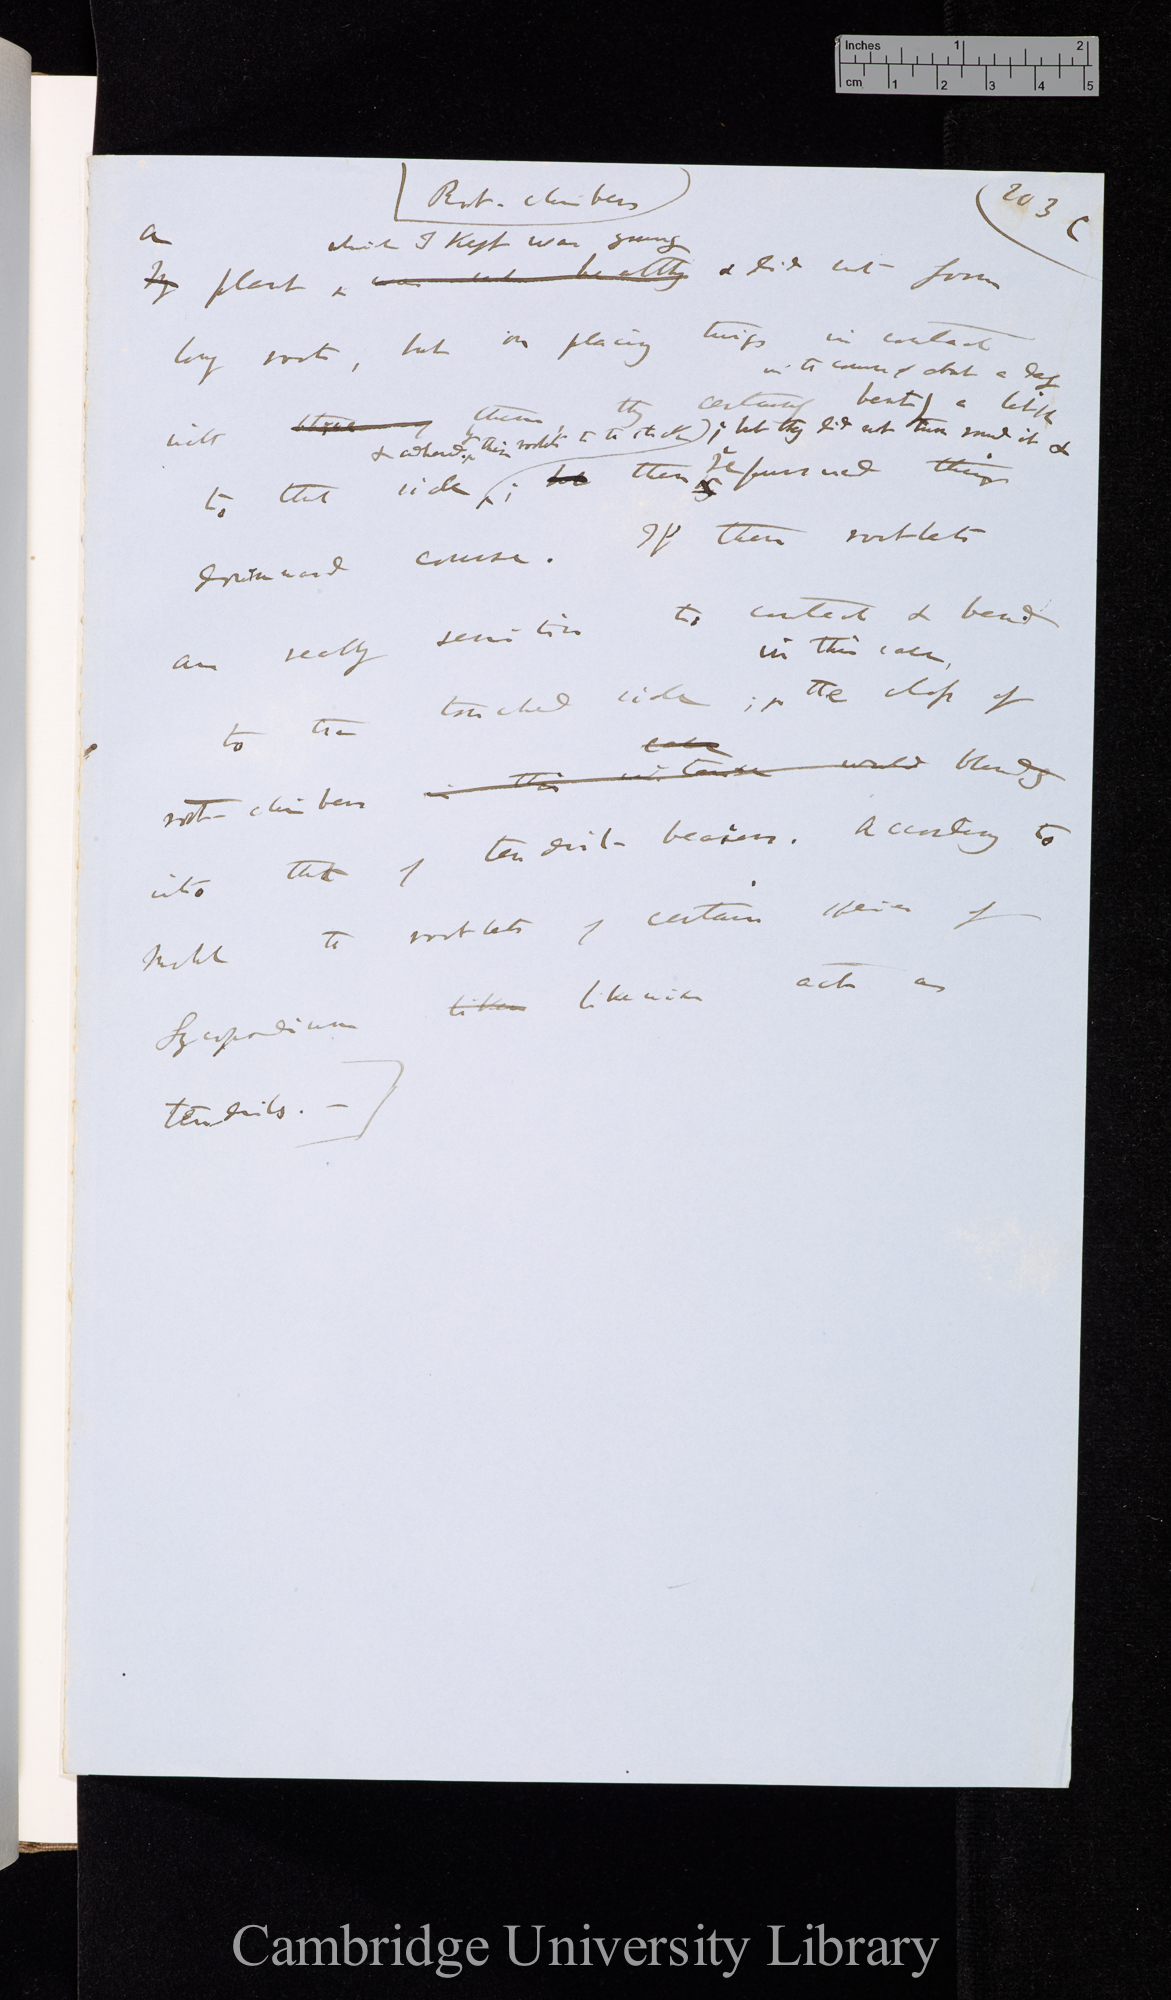 Inches 1 2
cm 1 2 3 4 5
Root-climbers
203 C
a
which I kept was young
My plant was not healthy & did not form
long roots, but on placing twigs in contact
in the course of about a day
with them, they certainly bent a little
& adhered by their rootlets to the stick; but they did not turn round it &
to that side; but then pursued their
downward course. If these rootlets
are really sensitive to contact & bend
in this case,
to the touched side; the class of
case
root-climbers in this instance would blends
into that of tendril-bearers. According to
Mohl the rootlets of certain species of
Lycopodium likew likewise act as
tendrils. —
Cambridge University Library